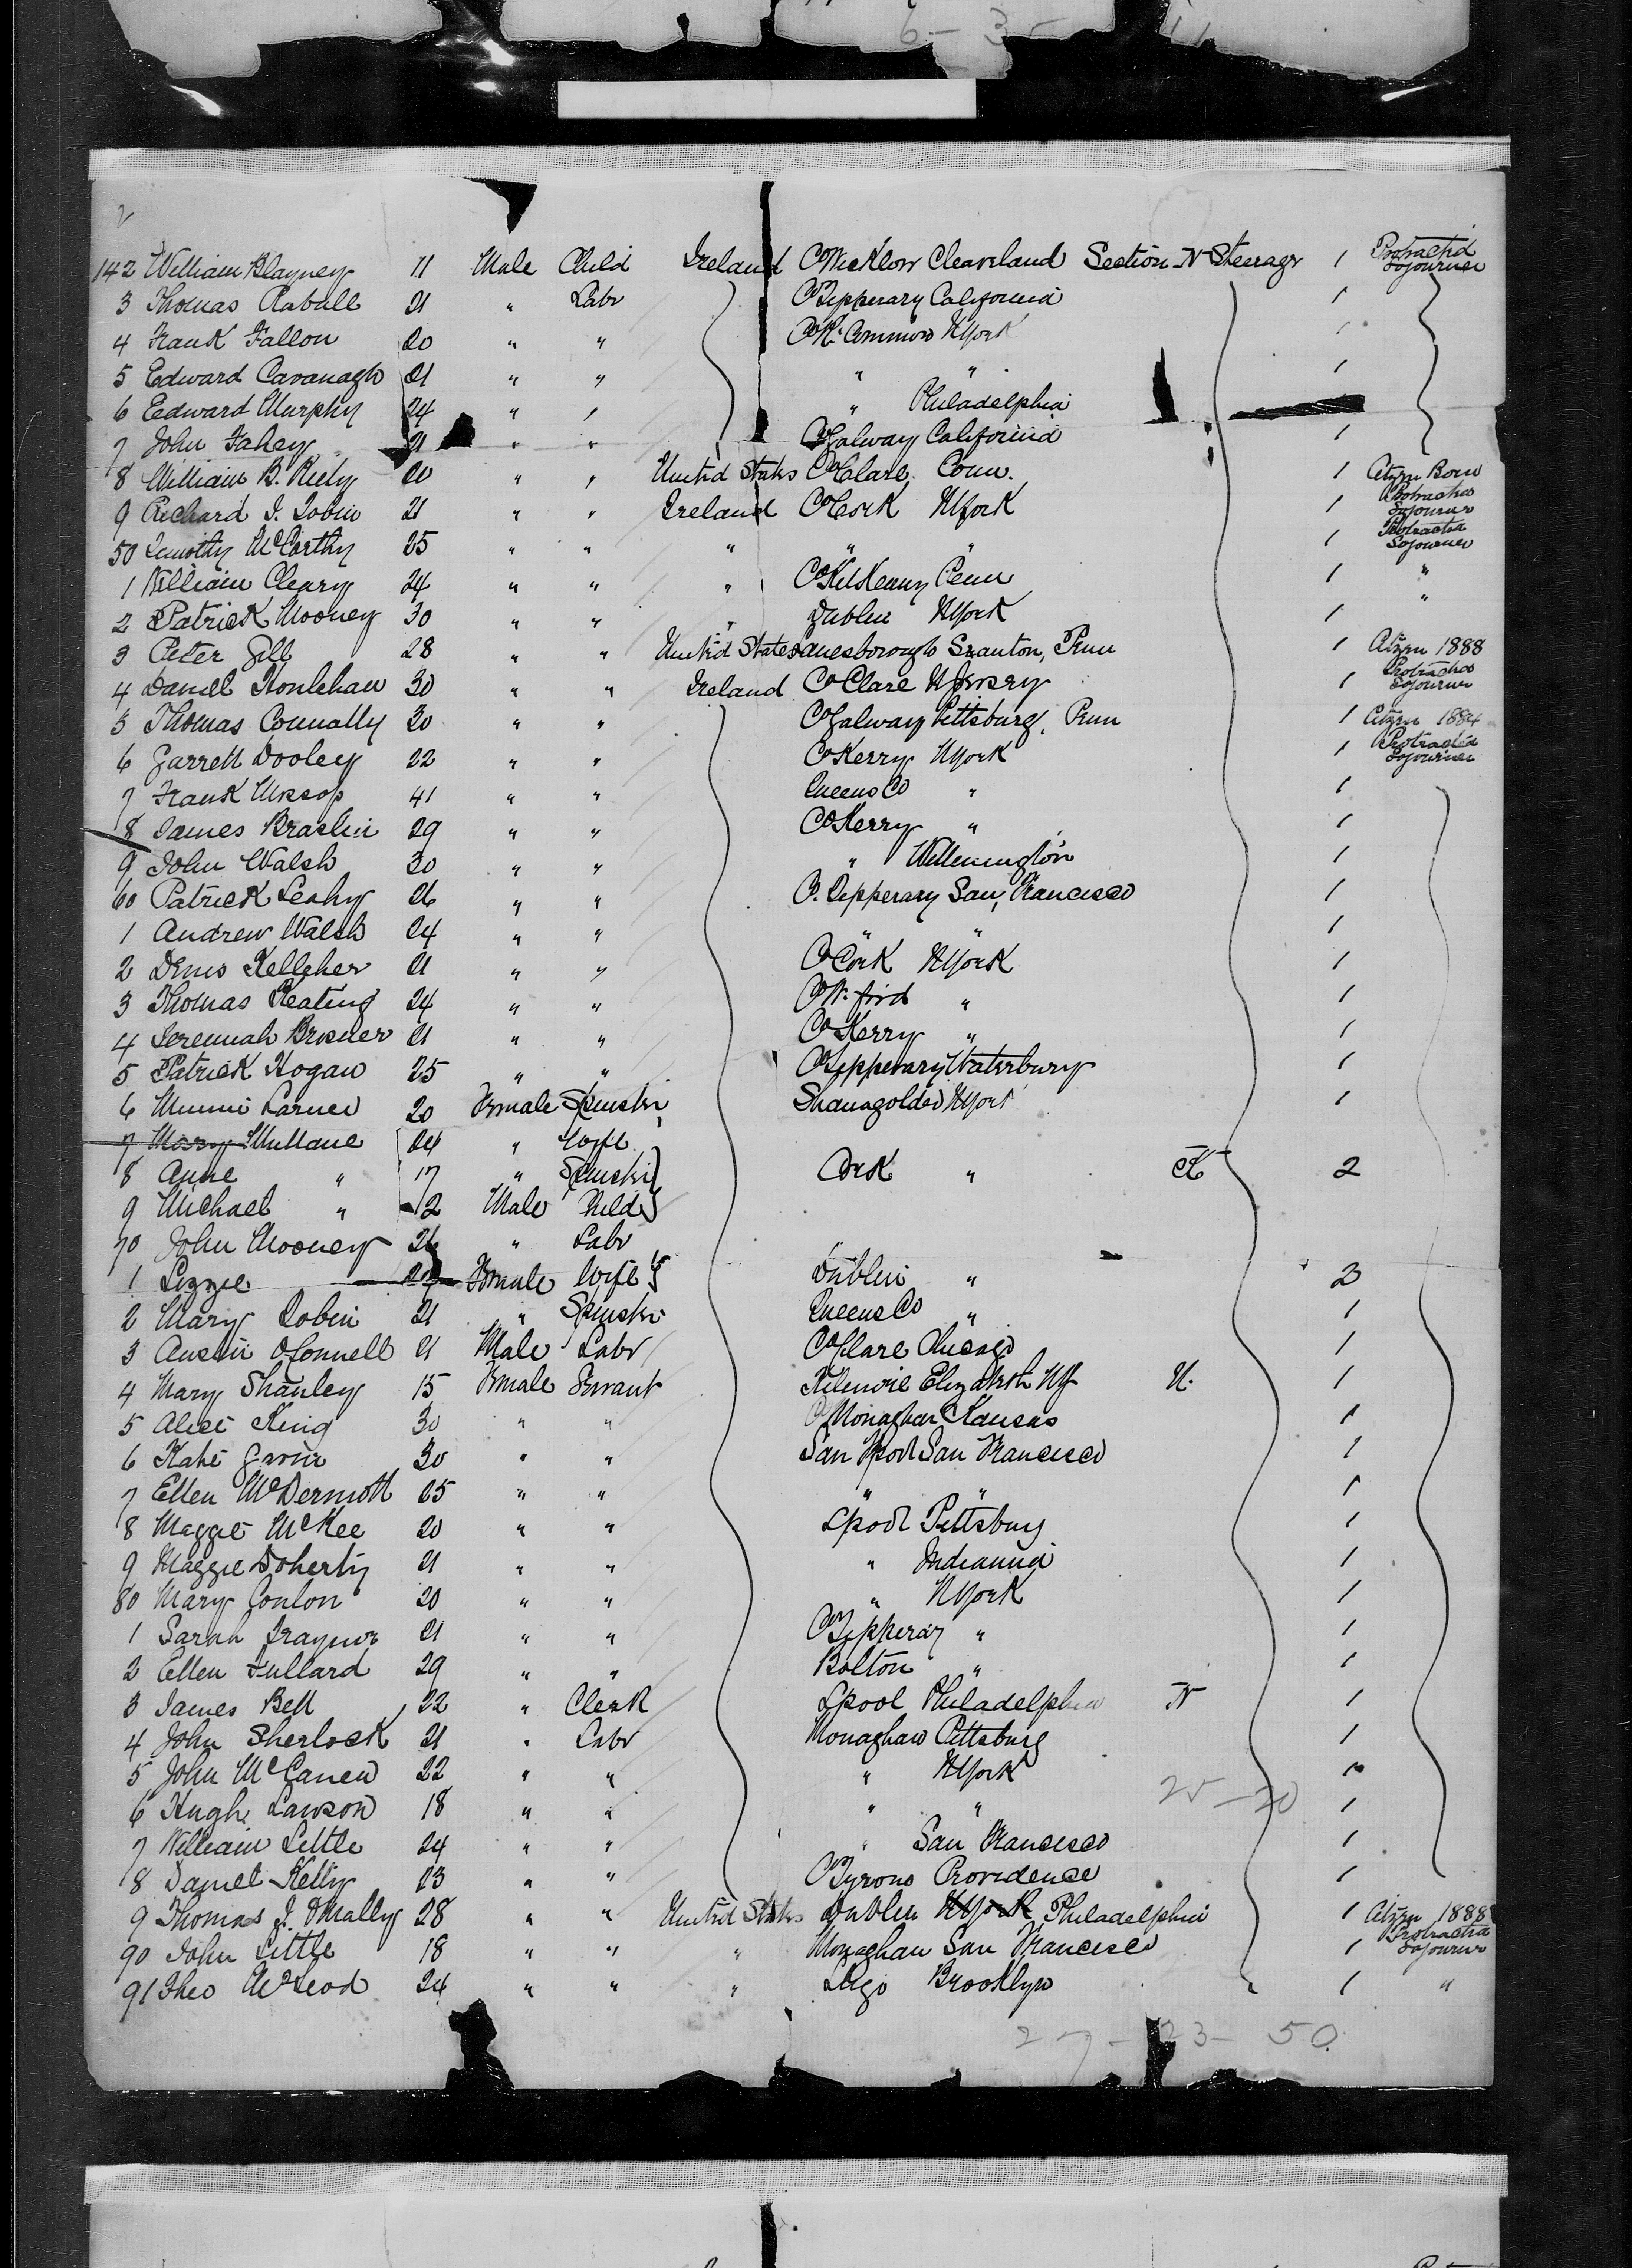 6 - 3 -
2
142 William Blayney 11 Male Child Ireland Co Wicklow Cleaveland Section N Steerage 1 Protracted Sojourner
3 Thomas Raball 21 " Labr Co Tipperary California 1
4 Frank Fallon 20 " " Co R. Common N York 1
5 Edward Cavanagh 21 " " " " 1
6 Edward Murphy 24 " " " Philadelphia
7 John Fahey 21 " " Co Galway California 1
8 William B. Riely 20 " " United States Co Clare, Conn. 1 Citzn Born
9 Richard J. Tobin 21 " " Ireland Co Cork N York 1 Protracted Sojourner
50 Timothy McCarthy 25 " " " " " 1 Protracted Sojourner
1 William Cleary 24 " " " Co Kilkenny Penn 1 "
2 Patrick Mooney 30 " " " Dublin N York 1 "
3 Peter Gill 28 " " United States Lanesborough Sranton, Penn 1 Citzn 1888
4 Daniel Honlehan 30 " " Ireland Co Clare N Jersey 1 Protracted Sojourner
5 Thomas Connally 30 " " Co Galway Pittsburg, Penn 1 Citzn 1884
6 Garrett Dooley 22 " " Co Kerry N York 1 Protracted Sojourner
7 Frank 41 " " Queens Co " 1
8 James Braslin 29 " " Co Kerry " 1
9 John Walsh 30 " " " Willmington 1
60 Patrick Leahy 26 " " Co. Tipperary San Francisco 1
1 Andrew Walsh 24 " " " " 1
2 Denis Kelleher 21 " " Co Cork N York 1
3 Thomas Keating 24 " " Co W. ford " 1
4 Jeremiah Brosner 21 " " Co Kerry " 1
5 Patrick Hogan 25 " " Co Tipperary Waterbury 1
6 Minnie 20 Female Spinster Shanagolden N York 1
7 Mary Mullane 24 " Wife
8 Anne " 17 " Spinster Cork " K 2
9 Michael " 12 Male Child
70 John Mooney 26 " Labr
1 Lizzie 27 Female Wife Dublin " 2
2 Mary Tobin 21 " Spinster Queens Co " 1
3 Austin OConnell 21 Male Labr Co Clare Chicago 1
4 Mary Shanley 15 Female Servant Elizabeth NJ N. 1
5 Alice King 30 " " Co Monaghan Kansas 1
6 Kate Gavin 30 " " San Francisco 1
7 Ellen McDermott 25 " " " " 1
8 Maggie McKee 20 " " Lpool Pittsburg 1
9 Maggie Doherty 21 " " " Indianna 1
80 Mary Conlon 20 " " " N York 1
1 Sarah Traynor 21 " " Co Tipperary " 1
2 Ellen Fullard 29 " " Bolton " 1
3 James Bell 22 " Clerk Lpool Philadelphia N 1
4 John Sherlock 21 " Labr Monaghan Pittsburg 1
5 John McCanen 22 " " " N York 1
6 Hugh Lawson 18 " " " " 25-20 1
7 William Little 24 " " " San Francisco 1
8 Daniel Kelly 23 " " Co Tyrone Providence 1
9 Thomas J. OMally 28 " " United States Dublin N York Philadelphia 1 Citzn 1888
90 John Little 18 " " " Monaghan San Francisco 1 Protracted Sojourner
91 Theo McLeod 24 " " " Sligo Brooklyn 1 "
27-23-50